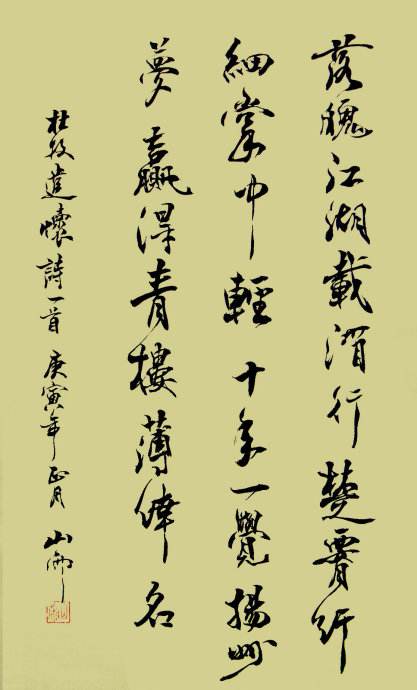 落魄江湖載酒行楚腰纤
細掌中輕十年一覺揚州
夢贏得青樓薄倖名
杜牧遣懷詩一首庚寅年正月山